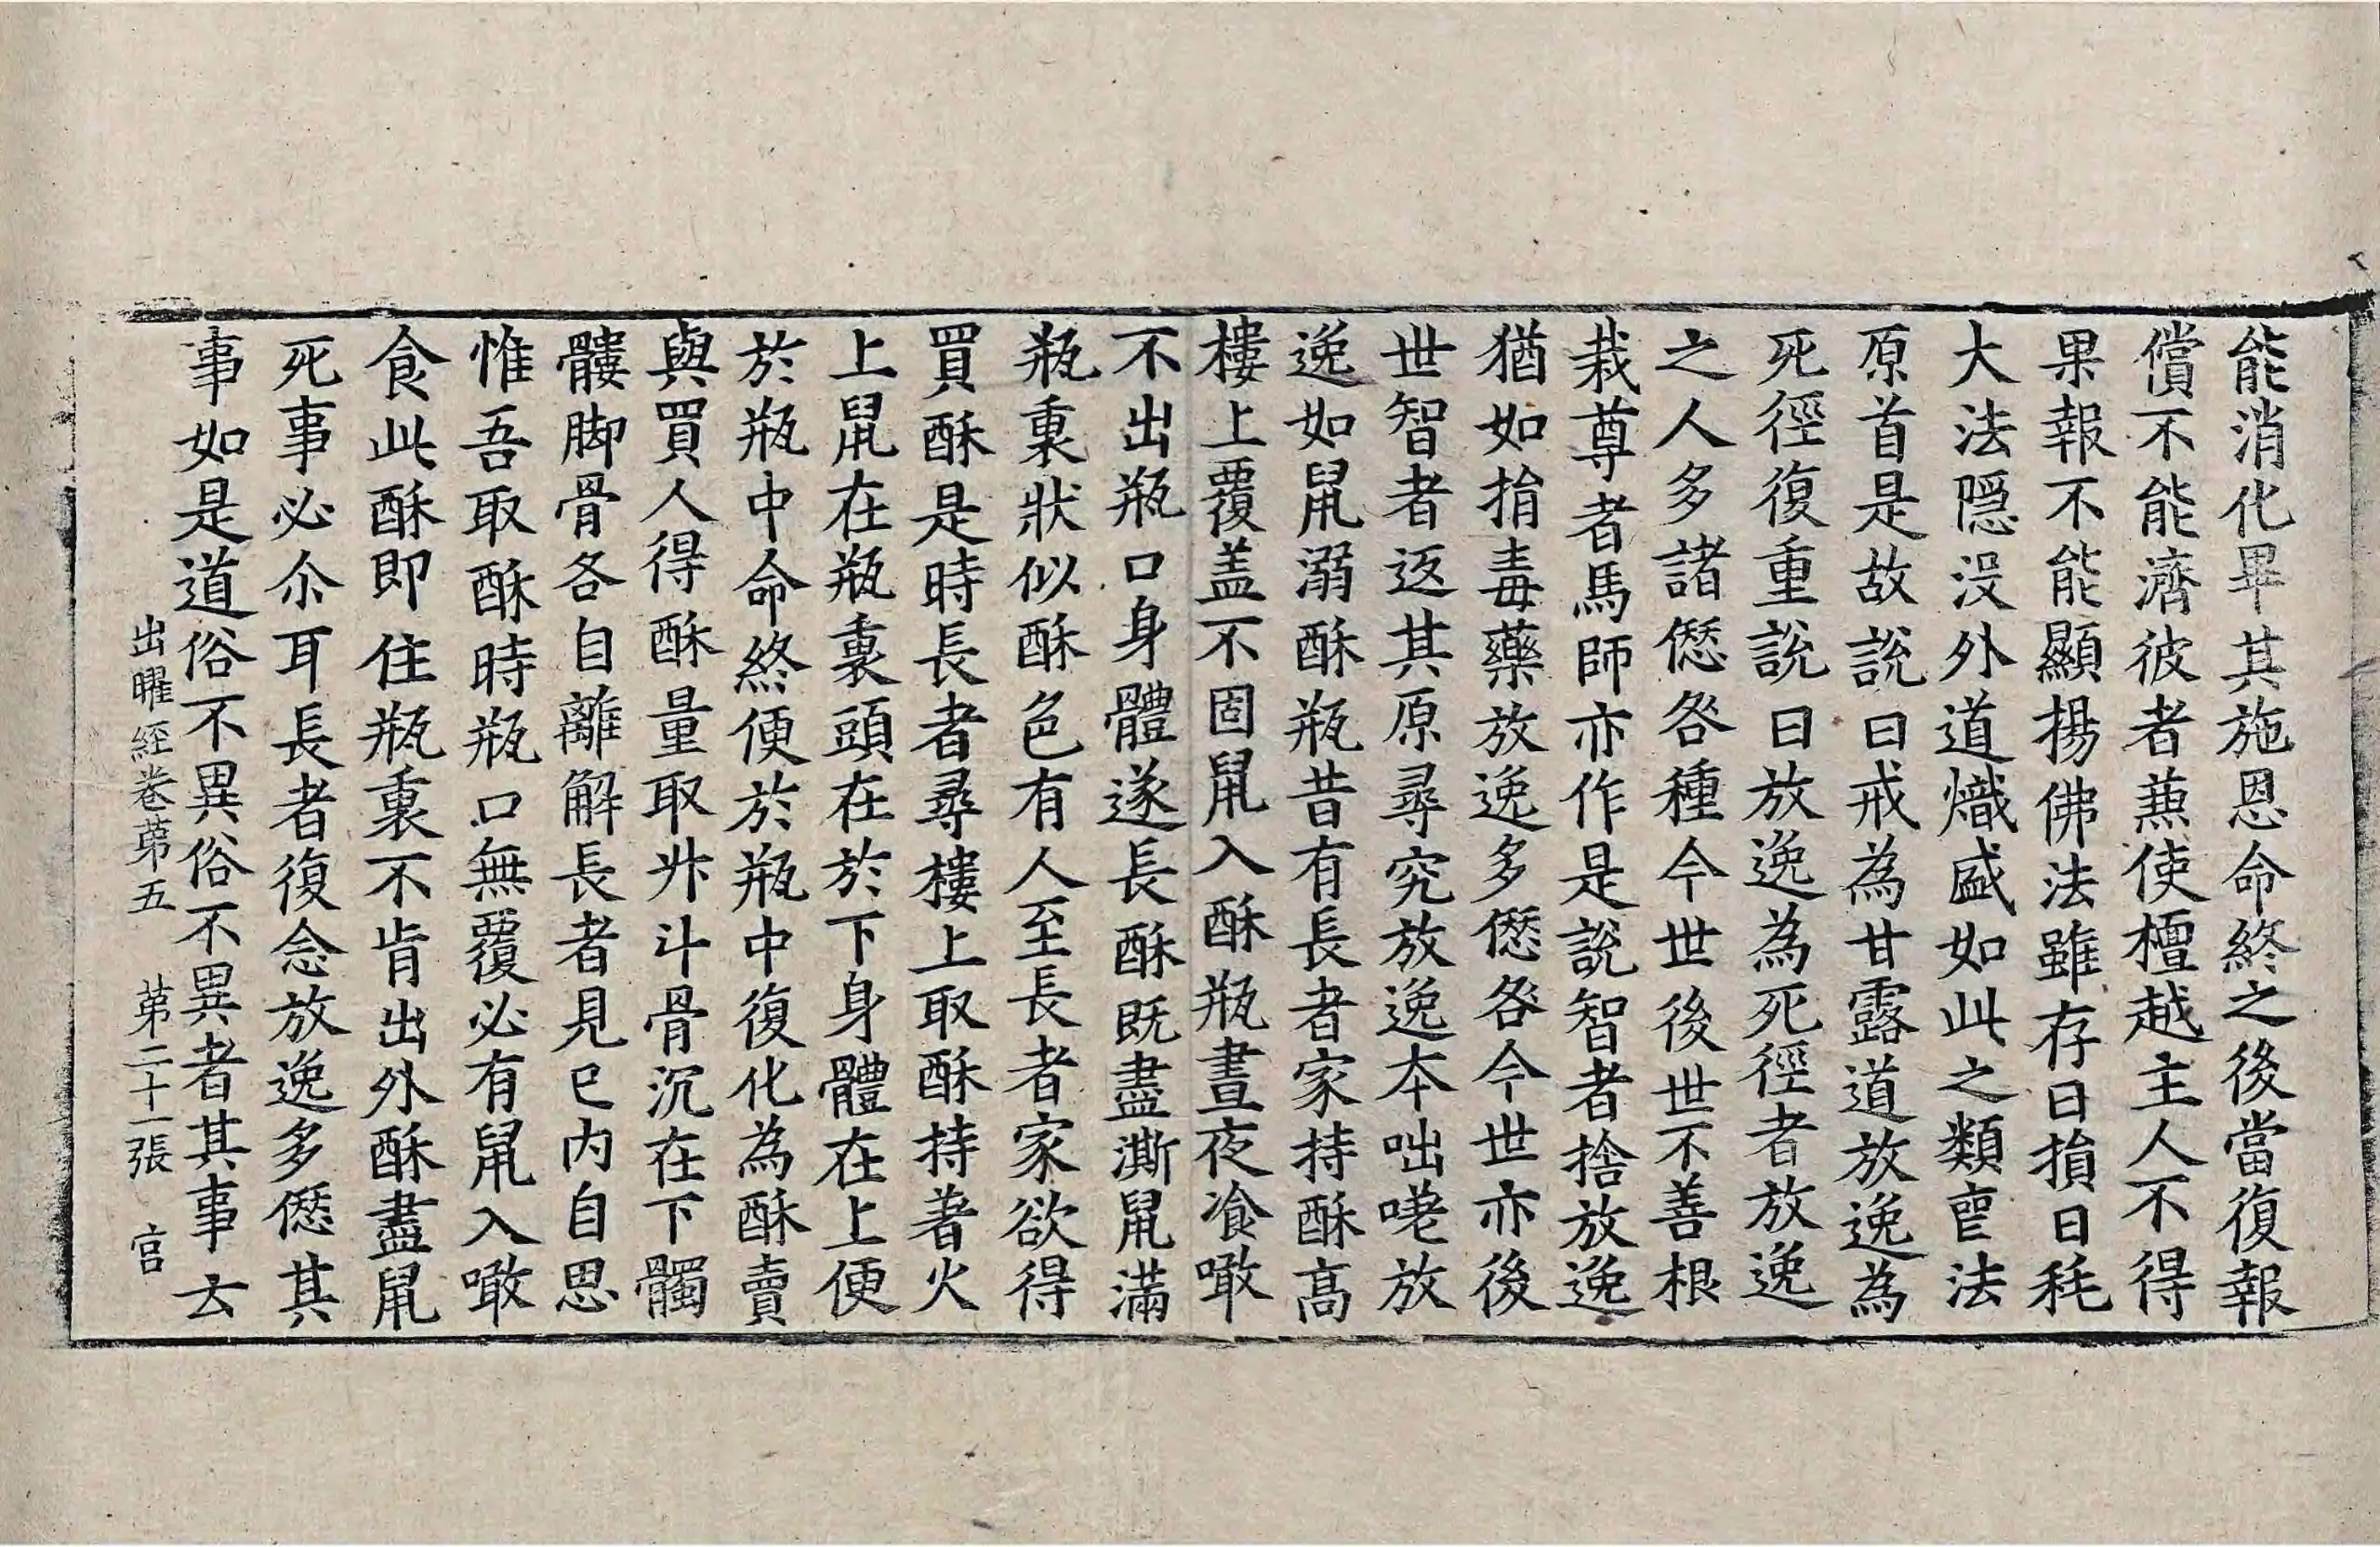 能消化畢其施恩命終之後當復報
償不能濟彼者𠔥使檀越主人不得
果報不能顯揚佛法雖存日損日耗
大法隱没外道熾盛如此之類亡法
原首是故說曰戒為甘露道放逸為
死徑復重說曰放逸為死徑者放逸
之人多諸𠎝咎種今世後世不善根
栽尊者馬師亦作是說智者捨放逸
猶如捐毒藥放逸多𠎝咎今世亦後
世智者返其原尋究放逸本咄嗟放
逸如鼠溺酥瓶昔有長者家持酥髙
樓上覆盖不固鼠入酥瓶晝夜飡噉
不出瓶口身體遂長酥既盡澌鼠滿
瓶裏狀似酥色有人至長者家欲得
買酥是時長者尋樓上取酥持著火
上鼠在瓶裏頭在於下身體在上便
於瓶中命終便於瓶中復化為酥賣
與買人得酥量取升斗骨沉在下髑
髏脚骨各自離解長者見已内自思
惟吾取酥時瓶口無覆必有鼠入噉
食此酥即住瓶裏不肯出外酥盡鼠
死事必尒耳長者復念放逸多𠎝其
事如是道俗不異俗不異者其事云
出曜經卷苐五 苐二十一張 官